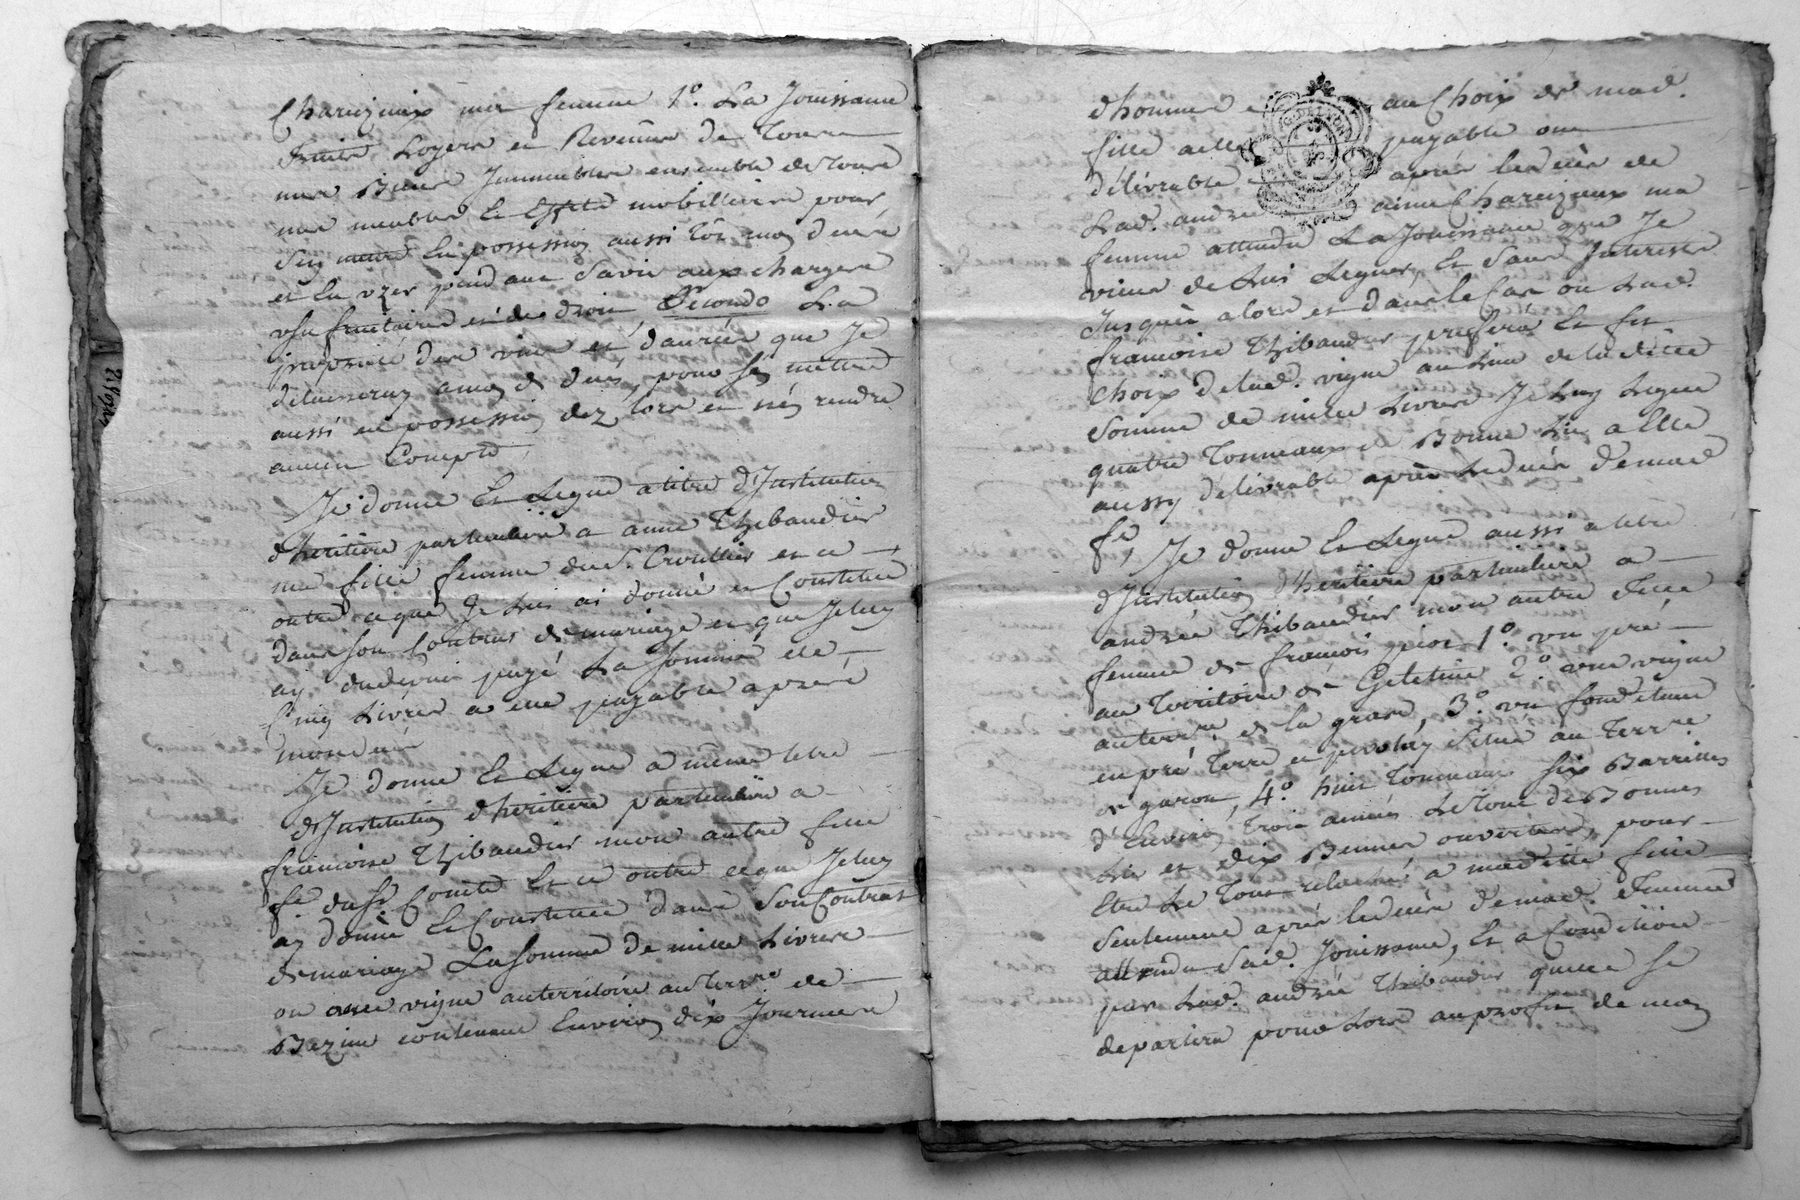 Chareizieux ma femme 1º. La Jouissance
fruits Loyers et Revenus de Tous
mes Biens Immeubles ensemble de tous
mes meubles et Effets mobilliers pour
sen mettre En possession aussi tôt mon décés
et En uzer pendant sa vie aux charges
usufruitaires et de droit Secondo La
propriété des vins et danrées que Je
delaisseray a mon déces, pour sen mettre
aussi en possession dez lors et nen rendre
aucun Compte,
Je donne Et Legue a titre d'Institution
d'heritiere particuliere a anne Thibaudier
ma fille femme du s. Croullier et ce
outre ce que Je Lui ai donné et Constitué
dans son Contrat de mariage et que Je luy
ay du depuis payé La somme de
Cinq Livres a elle payable apres
mon decés
Je donne Et Legue a même titre
d'Institution d'heritiere particuliere a
francoise Thibaudier mon autre fille
fe. du sr. Comte Et ce outre ceque Je luy
ay donné Et Constitué dans Son Contrat
de mariage La somme de mille Livres
ou une vigne au territoire de
Bazin contenant Environ dix Journées
d'hommes au Choix de mad.
fille payable ou
délivrable après le decès de
Lad. andrée Chareizieux ma
femme attendu La Jouissance que Je
viens de Lui Leguer, Et Sans Interest
Jusques a lors et dans le Cas ou Lad.
francoise Thibaudier prefera Et fit
choix de lad. vigne au Lieu de la ditte
Somme de mille Livres Je Luy Legue
quatre Tonneaux de Bonne Lie a Elle
aussy delivrable après Le decés de mad.
fe, Je donne Et Legue aussi a titre
d'Institution d'heritiere particuliere a
andrée Thibaudier mon autre fille
femme de françois 1º. un pré
au Territoire de 2º. une vigne
au terre. de la grave, 3º. un fond
en pré Terre et Situé au Terre.
de garon, 4º. huit Tonneaux Six Barrilles
d'Environ trois années Le Tout de Bonne
Lie et dix Bennes pour
Etre Le Tout relaché a madite fille
Seulement après le decès de mad. femme
attendu Sad. Jouissance, Et a Condition
par Lad. andrée Thibaudier quelle se
departira pour Lors au profit de mon